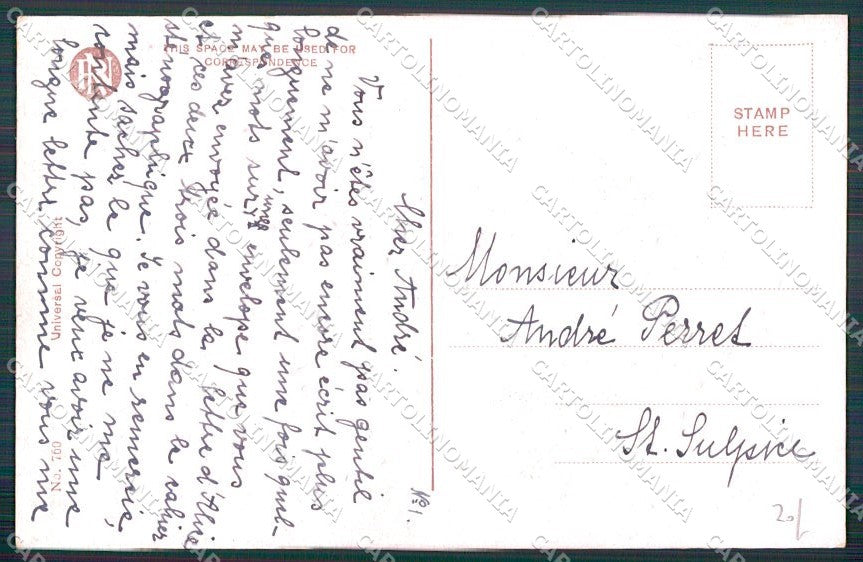 THIS SPACE MAY BE USED FOR
CORRESPONDENCE
STAMP
HERE
No 1.
Cher André.
Vous n'êtes vraiment pas gentil
de ne m'avoir pas encore écrit plus
longuement, seulement une fois quel-
ques mots sur une envelope que vous
m'avez envoyée dans la lettre d'Alice
et ces deux trois mots dans le cahier
stenographique. Je vous en remercie,
mais sachez le que je ne me
contente pas, je veux avoir une
longue lettre comme vous me
Monsieur
André Perret
St. Sulpice
20/
Universal Copyright
No. 760
CARTOLINOMANIA